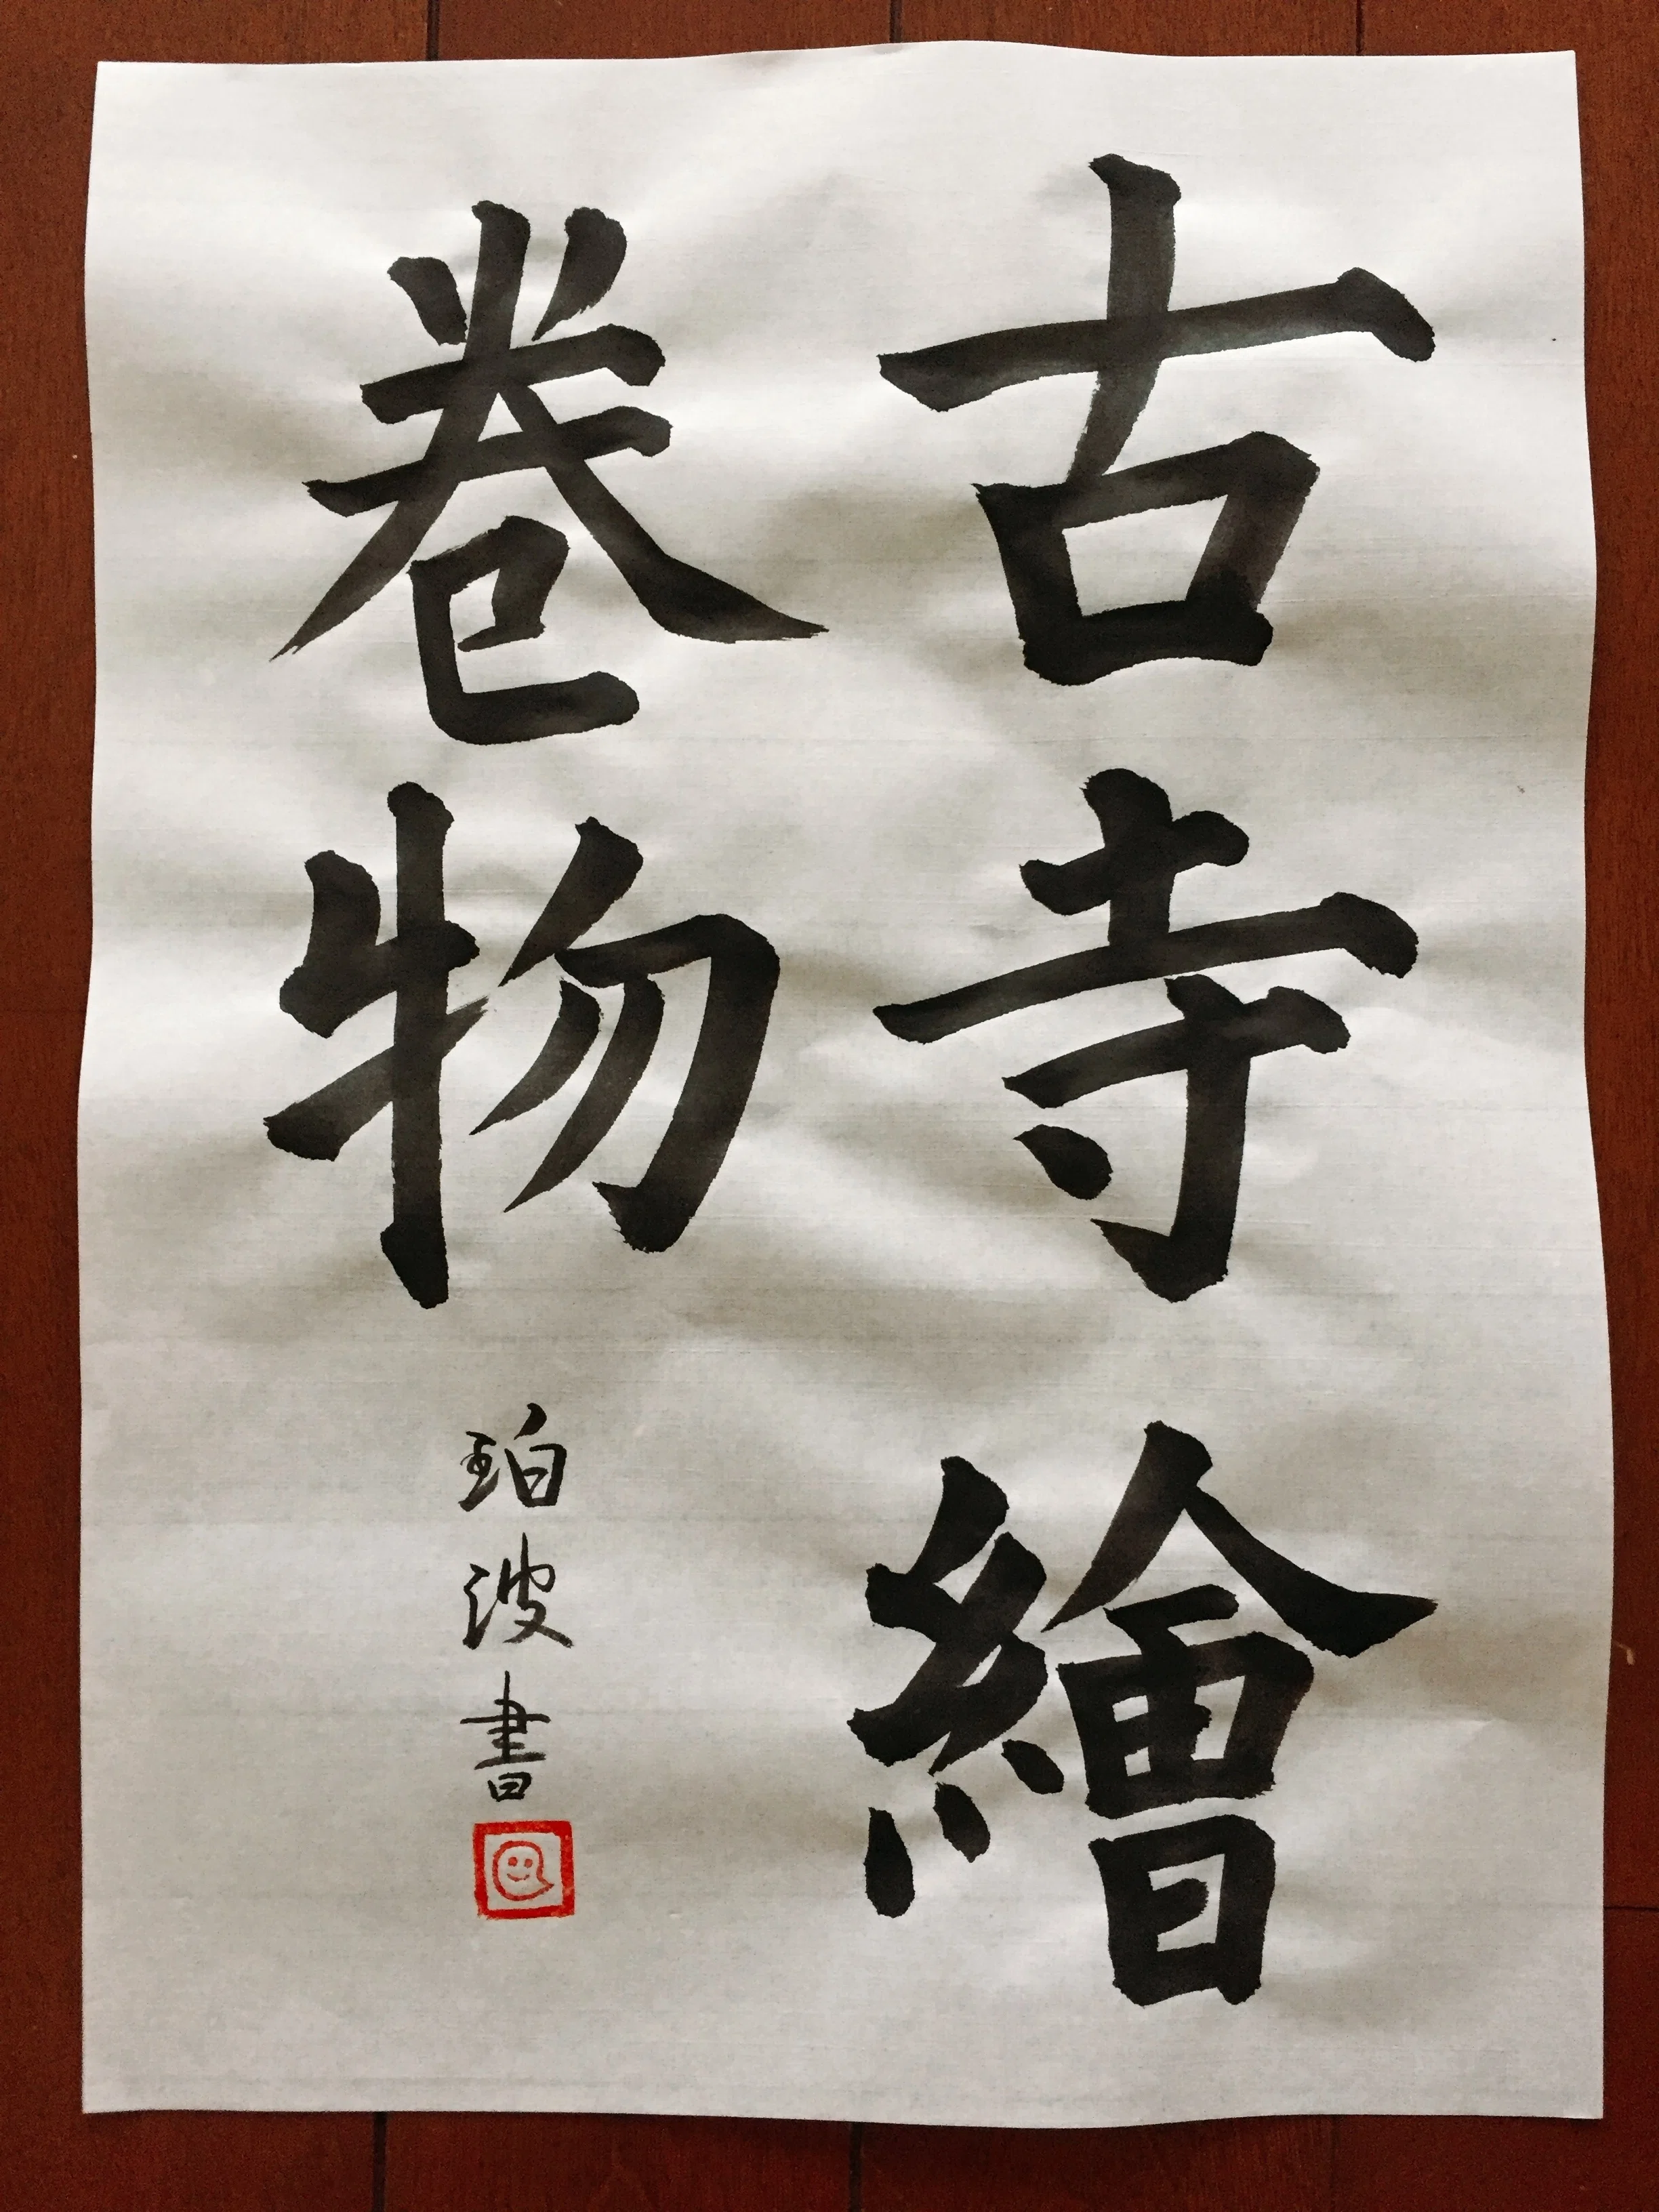 古寺繪
卷物
珀波書